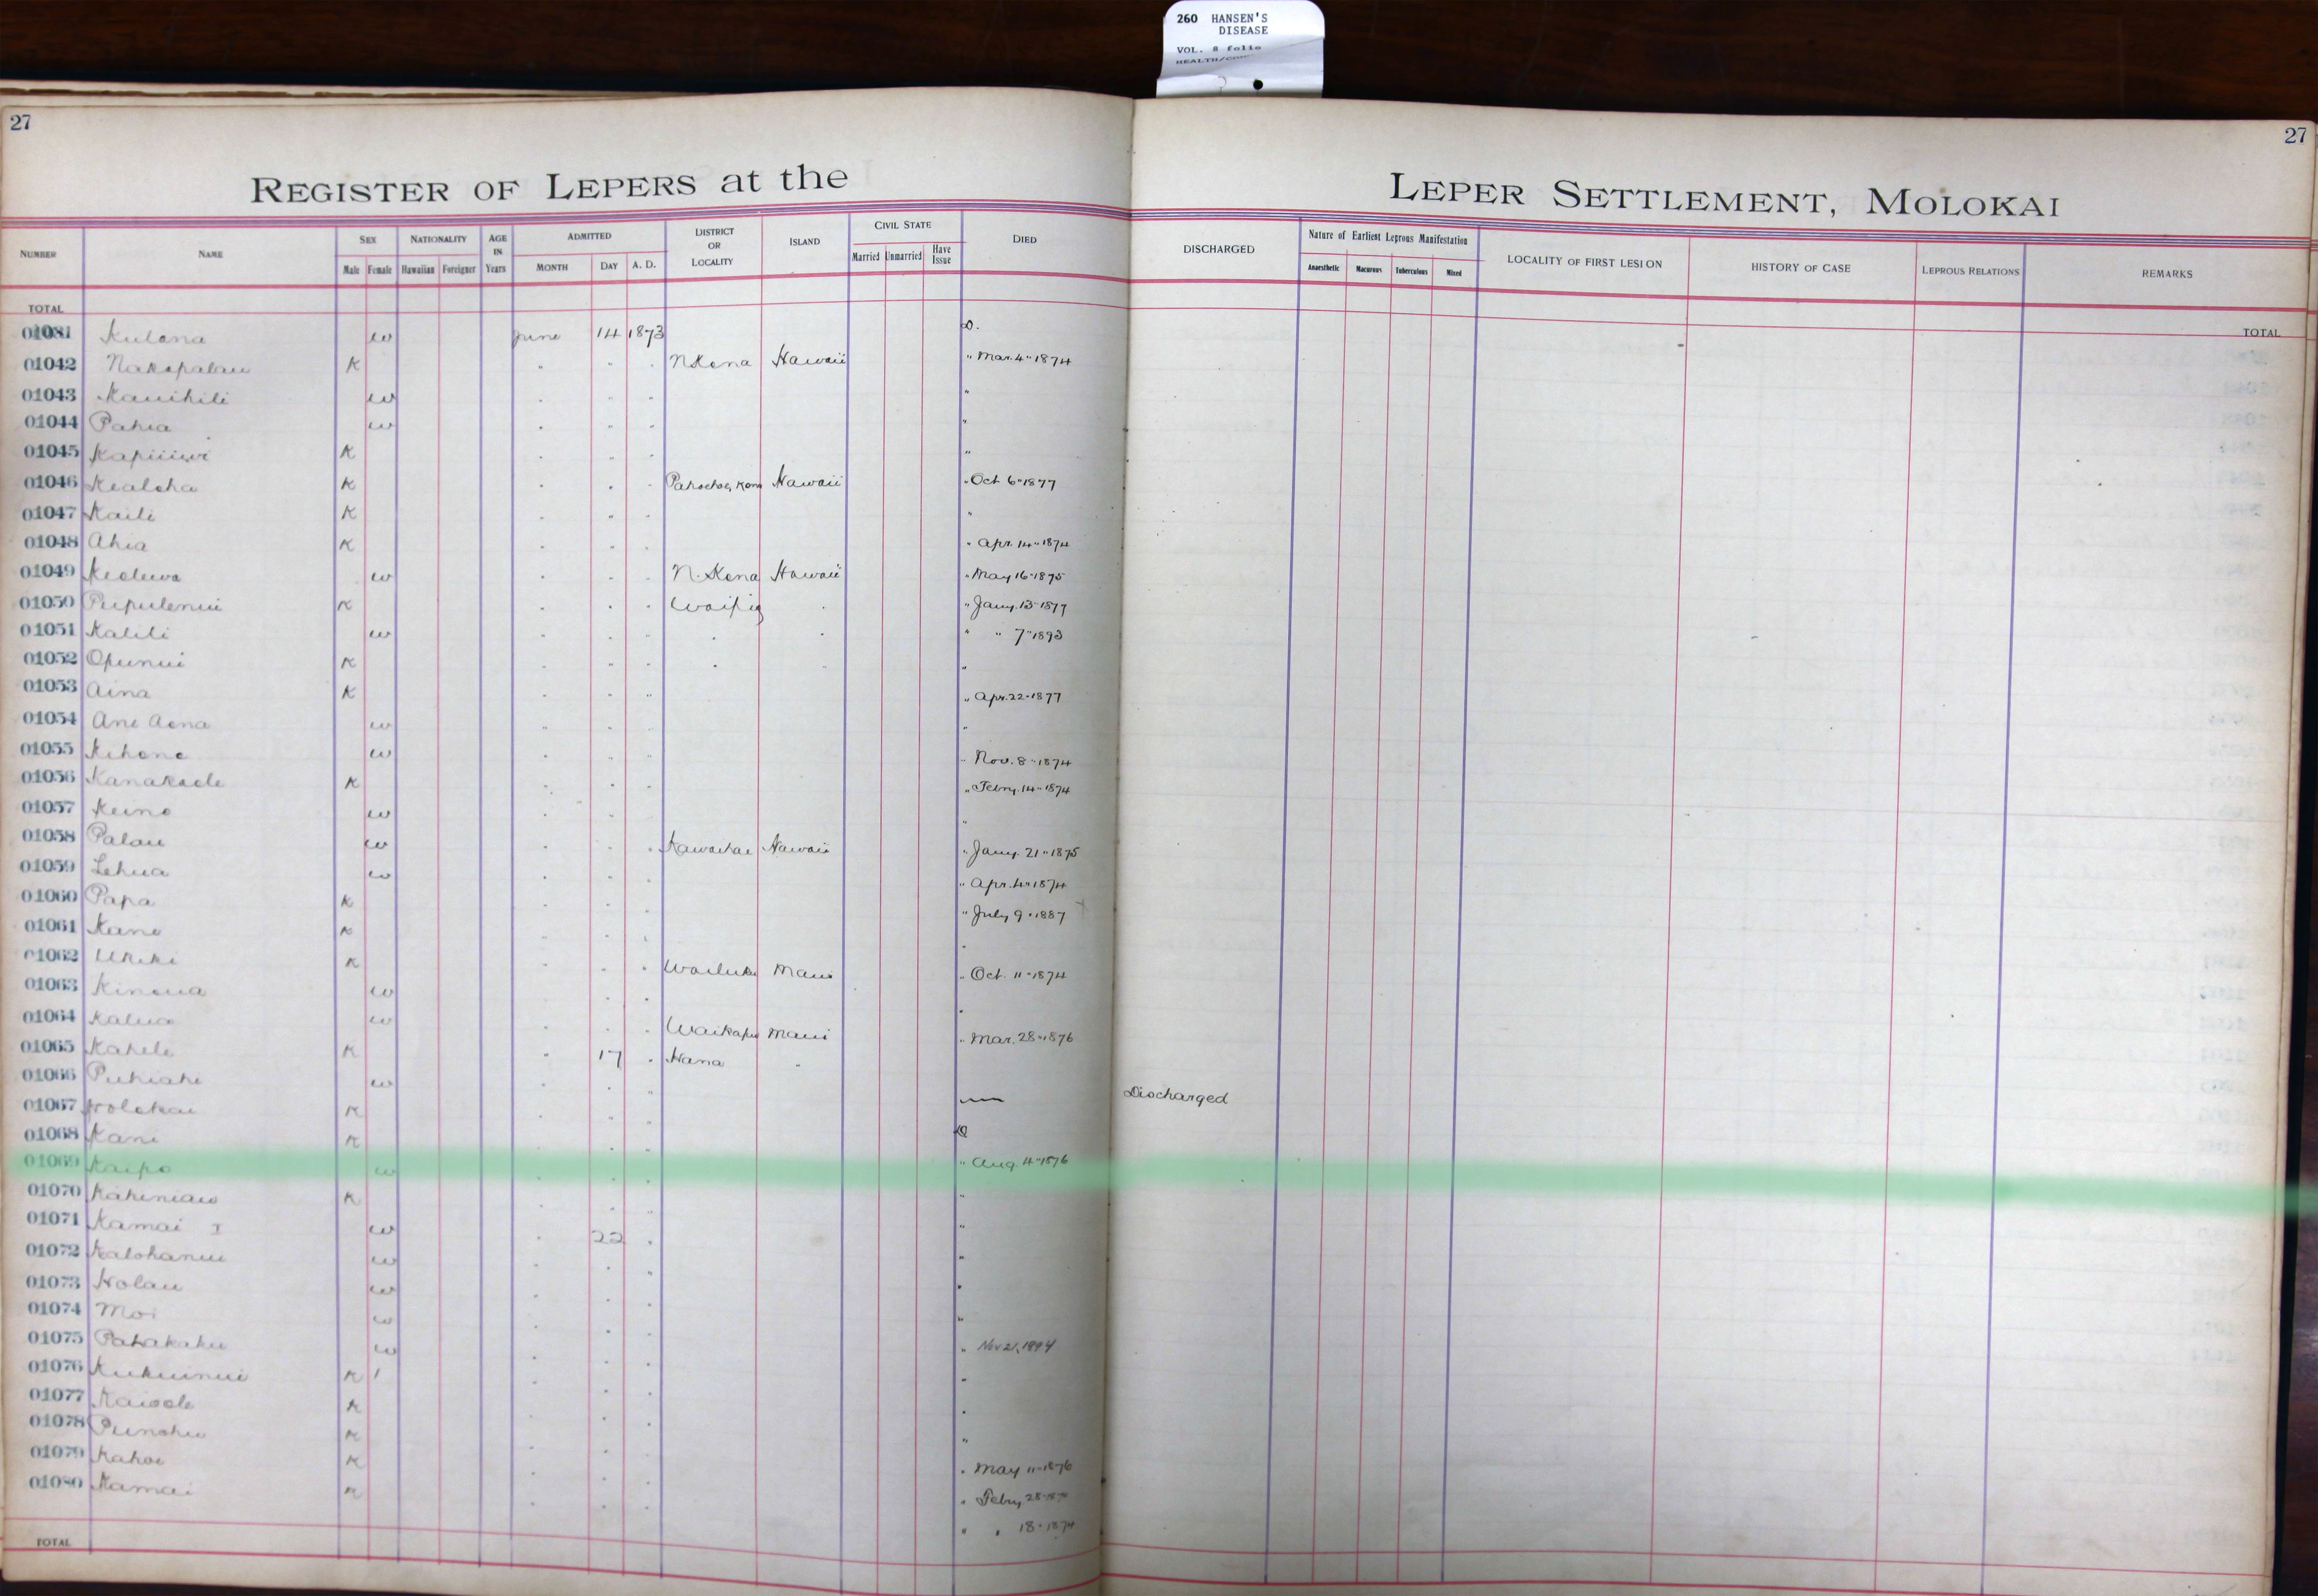 260 HANSEN'S
DISEASE
VOL. 8 folio
27
27
REGISTER OF LEPERS at the
LEPER SETTLEMENT, MOLOKAI
NUMBER NAME SEX NATIONALITY AGE IN Years ADMITTED DISTRICT OR LOCALITY ISLAND CIVIL STATE DIED DISCHARGED Nature of Earliest Leprous Manifestation LOCALITY OF FIRST LESION HISTORY OF CASE LEPROUS RELATIONS REMARKS
Male Female Hawaiian Foreigner MONTH DAY A. D. Married Unmarried Have Issue Anaesthetic Macurous Tuberculous Mixed
TOTAL
TOTAL
Kulana w June 14 1873 D.
01042 Nakapalau K " " " N Kona Hawaii " Mar. 4" 1874
01043 Kauihili w " " " "
01044 Pahia w " " " "
01045 K " " " "
01046 Kealoha K " " " Pahoehoe, Kona Hawaii " Oct 6" 1877
01047 Kaili K " " " "
01048 Ahia K " " " " Apr. 14" 1874
01049 Keoluwa w " " " N. Kona Hawaii " May 16" 1875
01050 Pupulenui K " " " Waipio " " Jany. 13" 1877
01051 Kalili w " " " " " " " 7" 1893
01052 Opunui K " " " " " "
01053 Aina K " " " " Apr. 22" 1877
01054 Ane Aona w " " " "
01055 Kihene w " " " " Nov. 8" 1874
01056 Kanakaole K " " " " Febry. 14" 1874
01057 Keino w " " " "
01058 Palau w " " " Kawaihae Hawaii " Jany. 21" 1875
01059 Lehua w " " " " Apr. 4" 1874
01060 Papa K " " " " July 9" 1887
01061 Kane K " " " "
01062 Ukeke K " " " Wailuku Maui " Oct. 11" 1874
01063 Kinoua w " " " "
01064 Kalua w " " " Waikapu Maui " Mar. 28" 1876
01065 Kahele K " 17 " Hana "
01066 Puhiahi w " " " — Discharged
01067 Holokai K " " " D
01068 Kani K " " " " Aug. 4" 1876
01069 Kaipo w " " " "
01070 Kaheniau K " " " "
01071 Kamai I w " 22 " "
01072 Kalohanui w " " " "
01073 Holau w " " " "
01074 Moi w " " " " Nov 21, 1894
01075 Pahakaku w " " " "
01076 Kukuinui K " " " "
01077 Kaiwole K " " " "
01078 Punohu K " " " " May 11" 1876
01079 Kahoe K " " " " Febry 28"
01080 Kamai K " " " " " 18" 1874
TOTAL